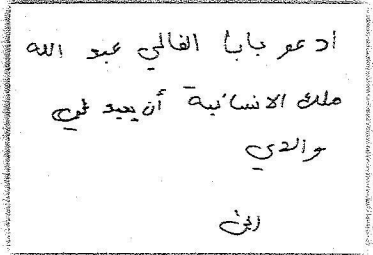 ادعو بابا الغالي عبد الله
ملك الانسانية أن يعيد لي
والدي